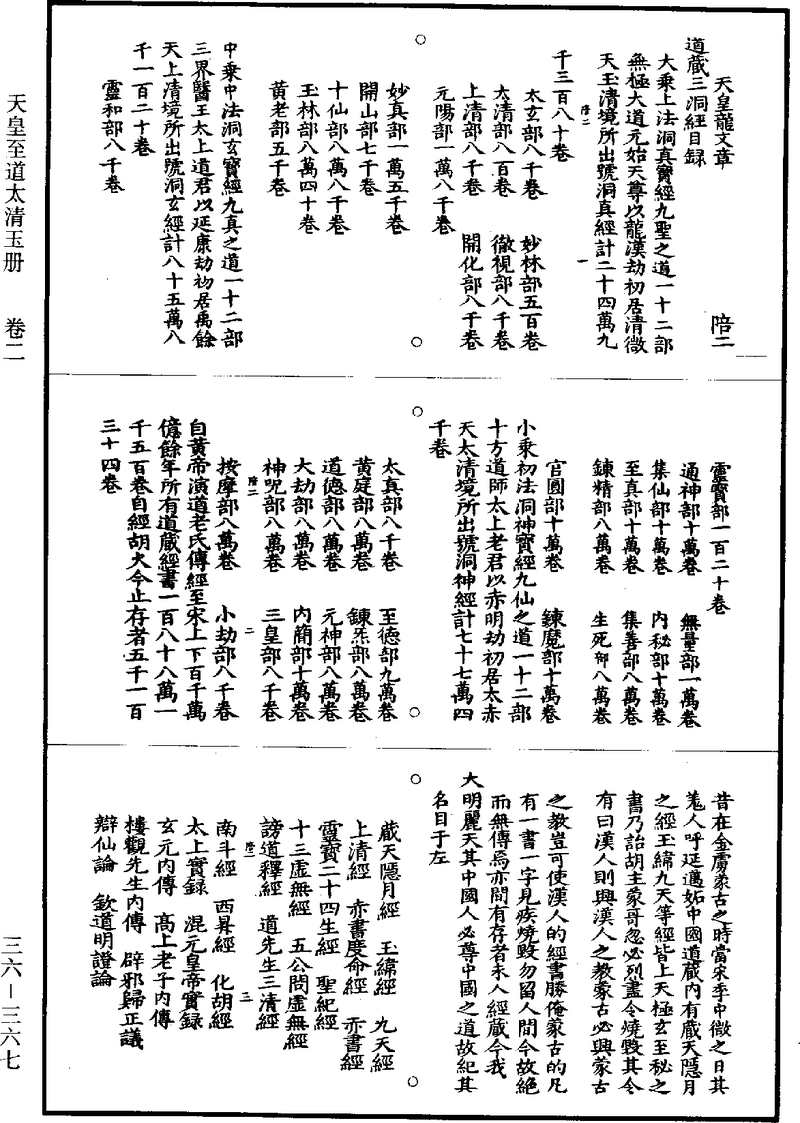 天皇至道太清玉册　卷二
三六—三六七
天皇龍文章　陪二
道藏三洞經目録
大乗上法洞真寶經九聖之道一十二部
無極大道元始天尊以龍漢劫初居清微
天玉清境所出號洞真經計二十四萬九
陪二　一
千三百八十卷
太玄部八千卷　妙林部五百卷
太清部八百卷　徹視部八千卷
上清部八千卷　開化部八千卷
元陽部一萬八千卷
妙真部一萬五千卷
開山部七千卷
十仙部八萬八千卷
玉林部八萬四十卷
黄老部五千卷
中乗中法洞玄寶經九真之道一十二部
三界醫王太上道君以延康劫初居禹餘
天上清境所出號洞玄經計八十五萬八
千一百二十卷
靈和部八千卷
靈寶部一百二十卷
通神部十萬卷　無量部一萬卷
集仙部十萬卷　内秘部十萬卷
至真部十萬卷　集善部八萬卷
鍊精部八萬卷　生死部八萬卷
官圓部十萬卷　鍊魔部十萬卷
小乗初法洞神寶經九仙之道一十二部
十方道師太上老君以赤明劫初居太赤
天太清境所出號洞神經計七十七萬四
千卷
太真部八千卷　至德部九萬卷
黄庭部八萬卷　鍊炁部八萬卷
道德部八萬卷　元神部八萬卷
大劫部八萬卷　内簡部十萬卷
神呪部八萬卷　三皇部八千卷
陪二　二
按摩部八萬卷　小劫部八千卷
自黄帝演道老氏傳經至宋上下百千萬
億餘年所有道藏經書一百八十八萬一
千五百卷自經胡火今止存者五千一百
三十四卷
昔在金虜蒙古之時當宋季中微之日其
羗人呼延邁妬中國道藏内有蔵天隠月
之經玉緯九天等經皆上天極玄至秘之
書乃詒胡主蒙哥忽必烈盡令燒毀其令
有曰漢人則興漢人之教蒙古必興蒙古
之教豈可使漢人的經書勝俺蒙古的凡
有一書一字見疾燒毀勿留人間今故絶
而無傳焉亦間有存者未人經蔵今我
大明麗天其中國人必尊中國之道故紀其
名目于左
蔵天隠月經　玉緯經　九天經
上清經　赤書度命經　赤書經
靈寶二十四生經　聖紀經
十三虚無經　五公問虚無經
謗道釋經　道先生三清經
陪二　三
南斗經　西昇經　化胡經
太上實録　混元皇帝實録
玄元内傳　高上老子内傳
樓觀先生内傳　辟邪歸正議
辯仙論　欽道明證論